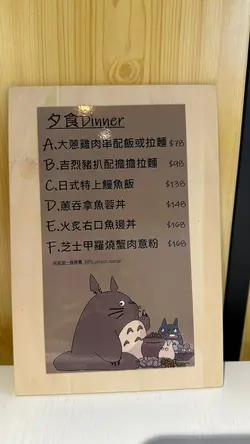 夕食Dinner
A.大蔥雞肉串配飯或拉麵 $78
B.吉烈豬扒配擔擔拉麵 $98
C.日式特上鰻魚飯 $138
D.蔥吞拿魚蓉丼 $148
E.火炙右口魚邊丼 $168
F.芝士甲羅燒蟹肉意粉 $168
10% service charge